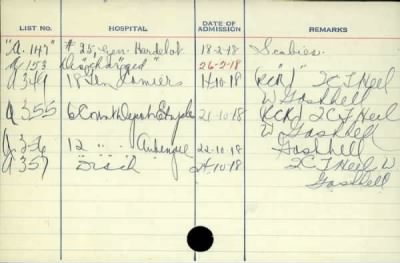 LIST NO. HOSPITAL DATE OF ADMISSION REMARKS
"A. 147" # 25, Gen. Hardelot 18-2-18 Scabies.
A 153 Dis"ch"arged" 26-2-18
A 349 18 Gen Camiers 14-10-18 (RCK)" ICT Heel
W Gashhell
A 355 6 Con Depot Etaples 21-10-18 (RCK) ICT Heel
W Gashhell
A 356 12 " " Aubengue 22-10-18 Gashhell
A 357 Disch 24-10-18 ICT Heel W
Gashhell